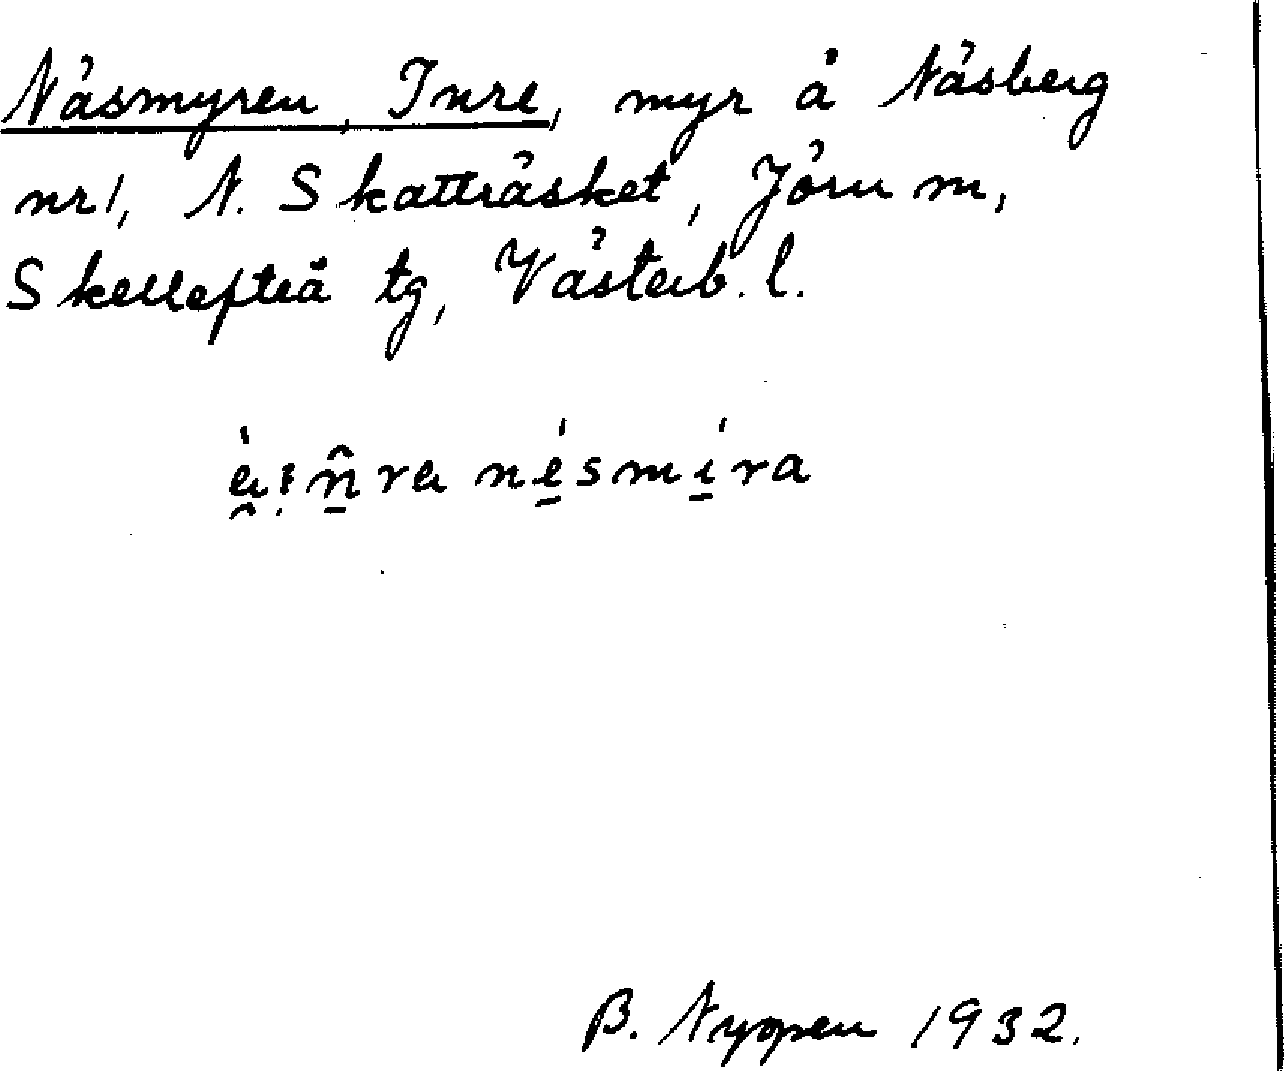 Näsmyren, Inre, myr å Näsberg
nr 1, N. Skatträsket, Jörn sn,
Skellefteå tg, Västerb. l.
nésmíra
B. Nygren 1932.